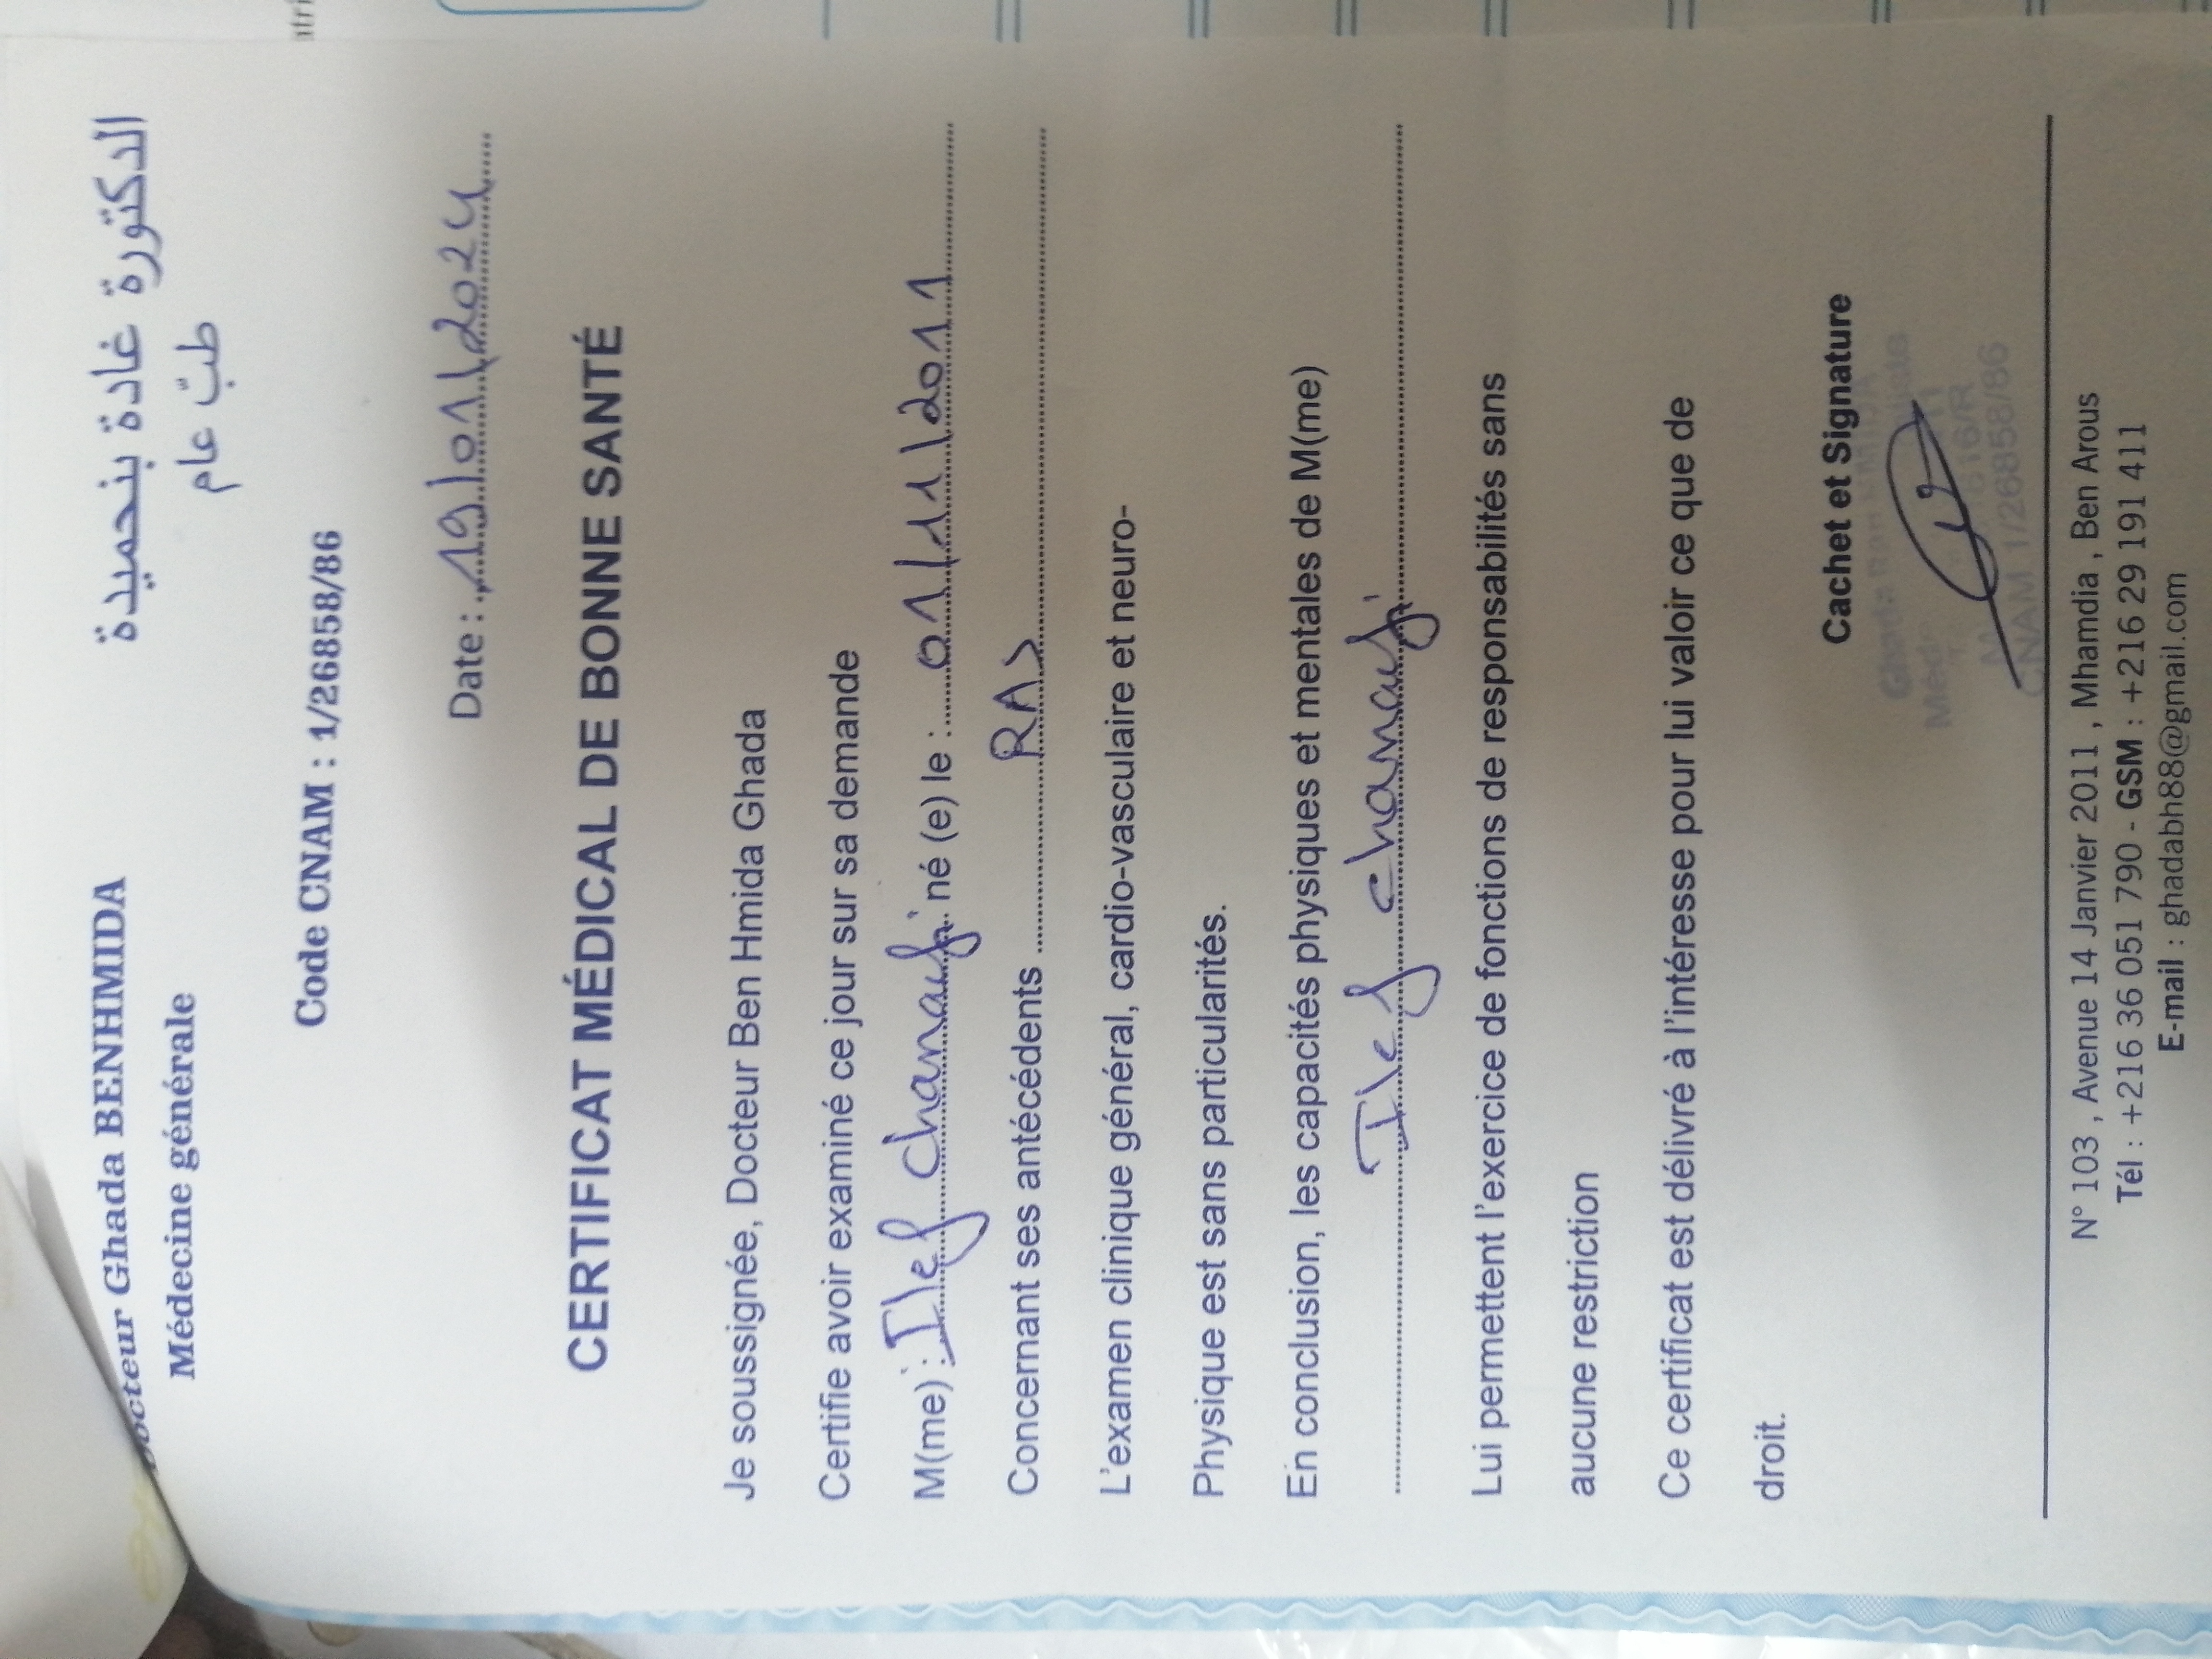 Docteur Ghada BENHMIDA
Médecine générale
الدكتورة غادة بنحميدة
طبّ عام
Code CNAM : 1/26858/86
Date : 19/01/2024
CERTIFICAT MÉDICAL DE BONNE SANTÉ
Je soussignée, Docteur Ben Hmida Ghada
Certifie avoir examiné ce jour sur sa demande
M(me) : Ilef chanoufi né (e) le : 01/11/2011
Concernant ses antécédents RAS
L'examen clinique général, cardio-vasculaire et neuro-
Physique est sans particularités.
En conclusion, les capacités physiques et mentales de M(me)
Ilef chanoufi
Lui permettent l'exercice de fonctions de responsabilités sans
aucune restriction
Ce certificat est délivré à l'intéresse pour lui valoir ce que de
droit.
Cachet et Signature
Ghada
CNAM 1/26858/86
N° 103 , Avenue 14 Janvier 2011 , Mhamdia , Ben Arous
Tél : +216 36 051 790 - GSM : +216 29 191 411
E-mail : ghadabh88@gmail.com